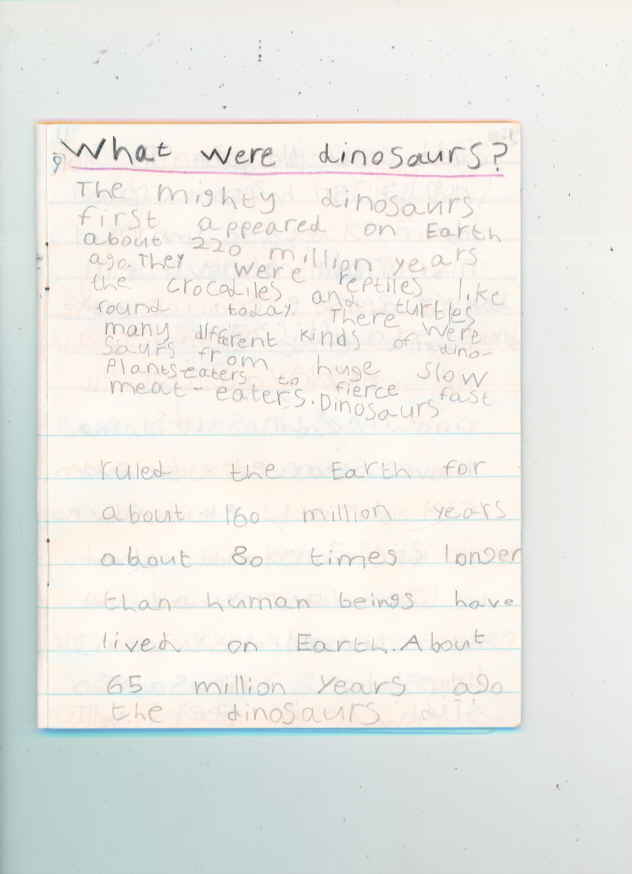 What were dinosaurs?
The mighty dinosaurs
first appeared on Earth
about 220 million years
ago. They were reptiles like
the crocodiles and turtles
found today. There were
many different kinds of dino-
saurs from huge slow
Plants-eaters to fierce fast
meat-eaters. Dinosaurs
ruled the Earth for
about 160 million years
about 80 times longer
than human beings have
lived on Earth. About
65 million years ago
the dinosaurs